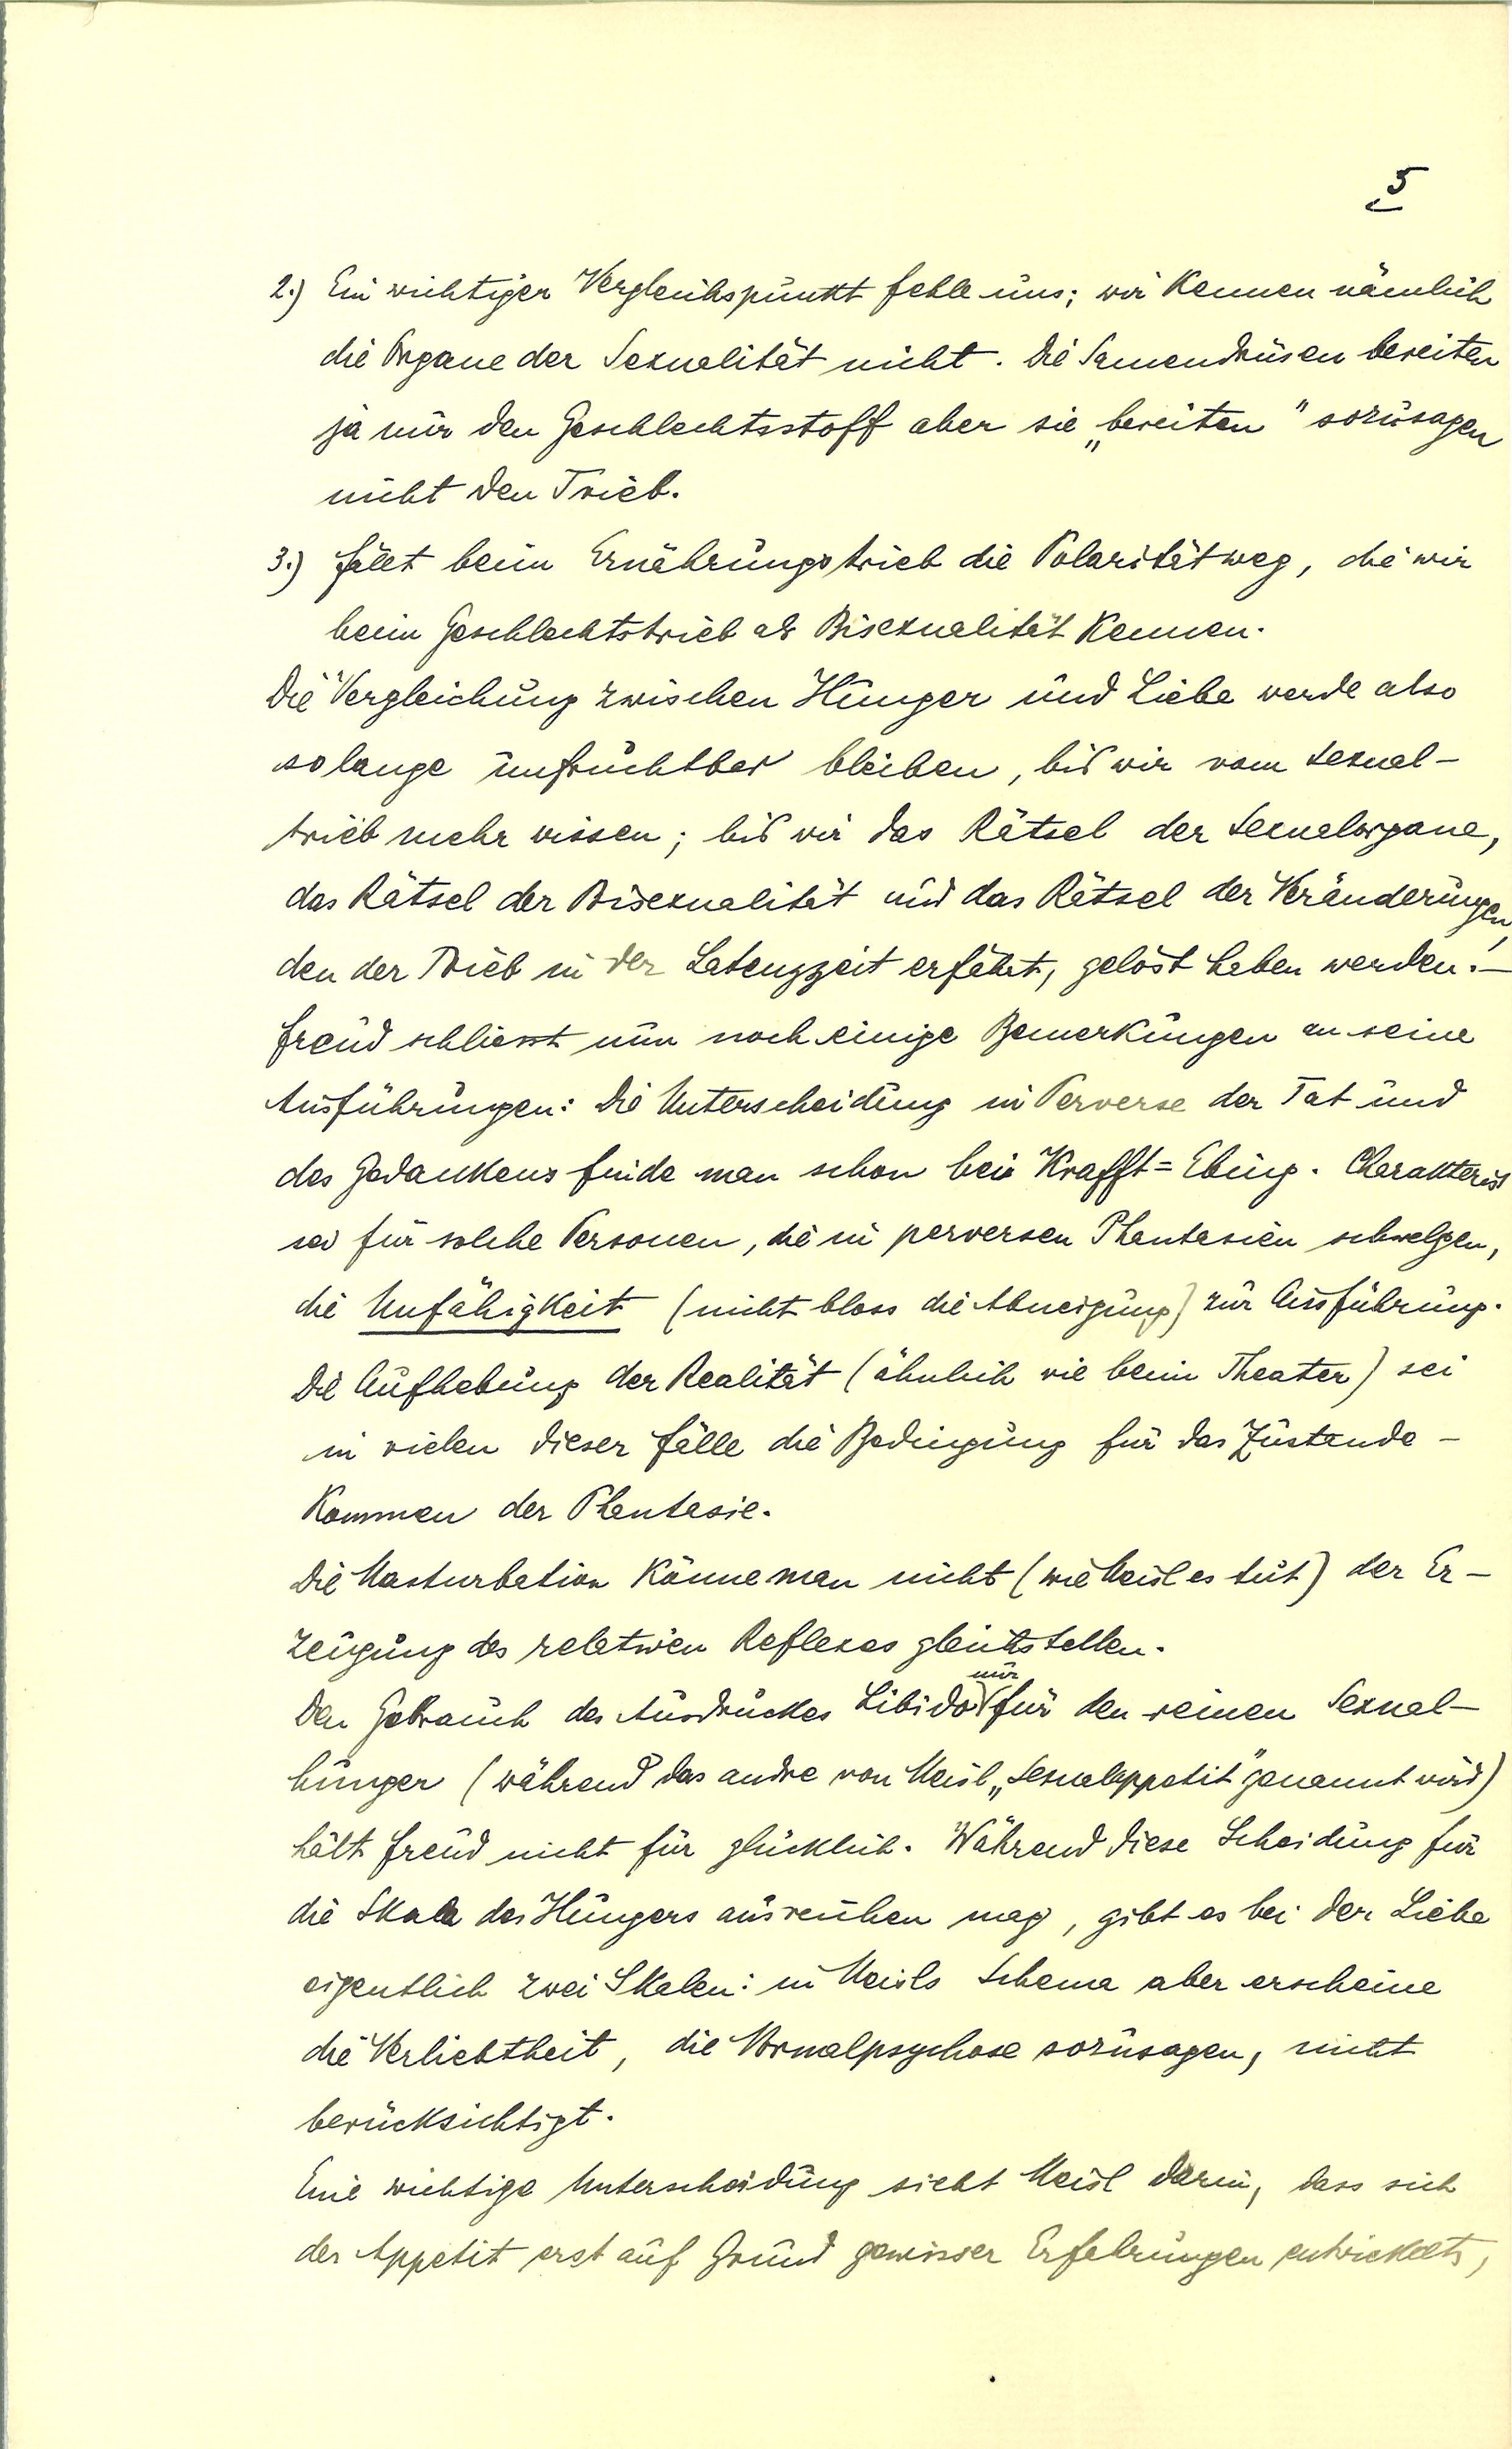 5
2.) Ein wichtiger Vergleichspunkt fehle uns; wir kennen nämlich
die Organe der Sexualität nicht. Die Samendrüsen bereiten
ja nur den Geschlechtsstoff aber sie „bereiten" sozusagen
nicht den Trieb.
3.) fällt beim Ernährungstrieb die Polarität weg, die wir
beim Geschlechtstrieb als Bisexualität kennen.
Die Vergleichung zwischen Hunger und Liebe werde also
solange unfruchtbar bleiben, bis wir vom Sexual-
trieb mehr wissen; bis wir das Rätsel der Sexualorgane,
das Rätsel der Bisexualität und das Rätsel der Veränderungen,
den der Trieb in der Latenzzeit erfährt, gelöst haben werden. –
Freud schliesst nun noch einige Bemerkungen an seine
Ausführungen: Die Unterscheidung in Perverse der Tat und
des Gedankens finde man schon bei Krafft=Ebing. Charakterist
sei für solche Personen, die in perversen Phantasien schwelgen,
die Unfähigkeit (nicht bloss die Abneigung) zur Ausführung.
Die Aufhebung der Realität (ähnlich wie beim Theater) sei
in vielen dieser Fälle die Bedingung für das Zustande-
kommen der Phantasie.
Die Masturbation könne man nicht (wie Meisl es tut) der Er-
zeugung des relativen Reflexes gleichstellen.
Den Gebrauch des Ausdruckes Libido nur für den reinen Sexual-
hunger (während das andre von Meisl „Sexualappetit" genannt wird)
hält Freud nicht für glücklich. Während diese Scheidung für
die Skala des Hungers ausreichen mag, gibt es bei der Liebe
eigentlich zwei Skalen: in Meisls Schema aber erscheine
die Verliebtheit, die Normalpsychose sozusagen, nicht
berücksichtigt.
Eine wichtige Unterscheidung sieht Meisl darin, dass sich
der Appetit erst auf Grund gewisser Erfahrungen entwickelt,